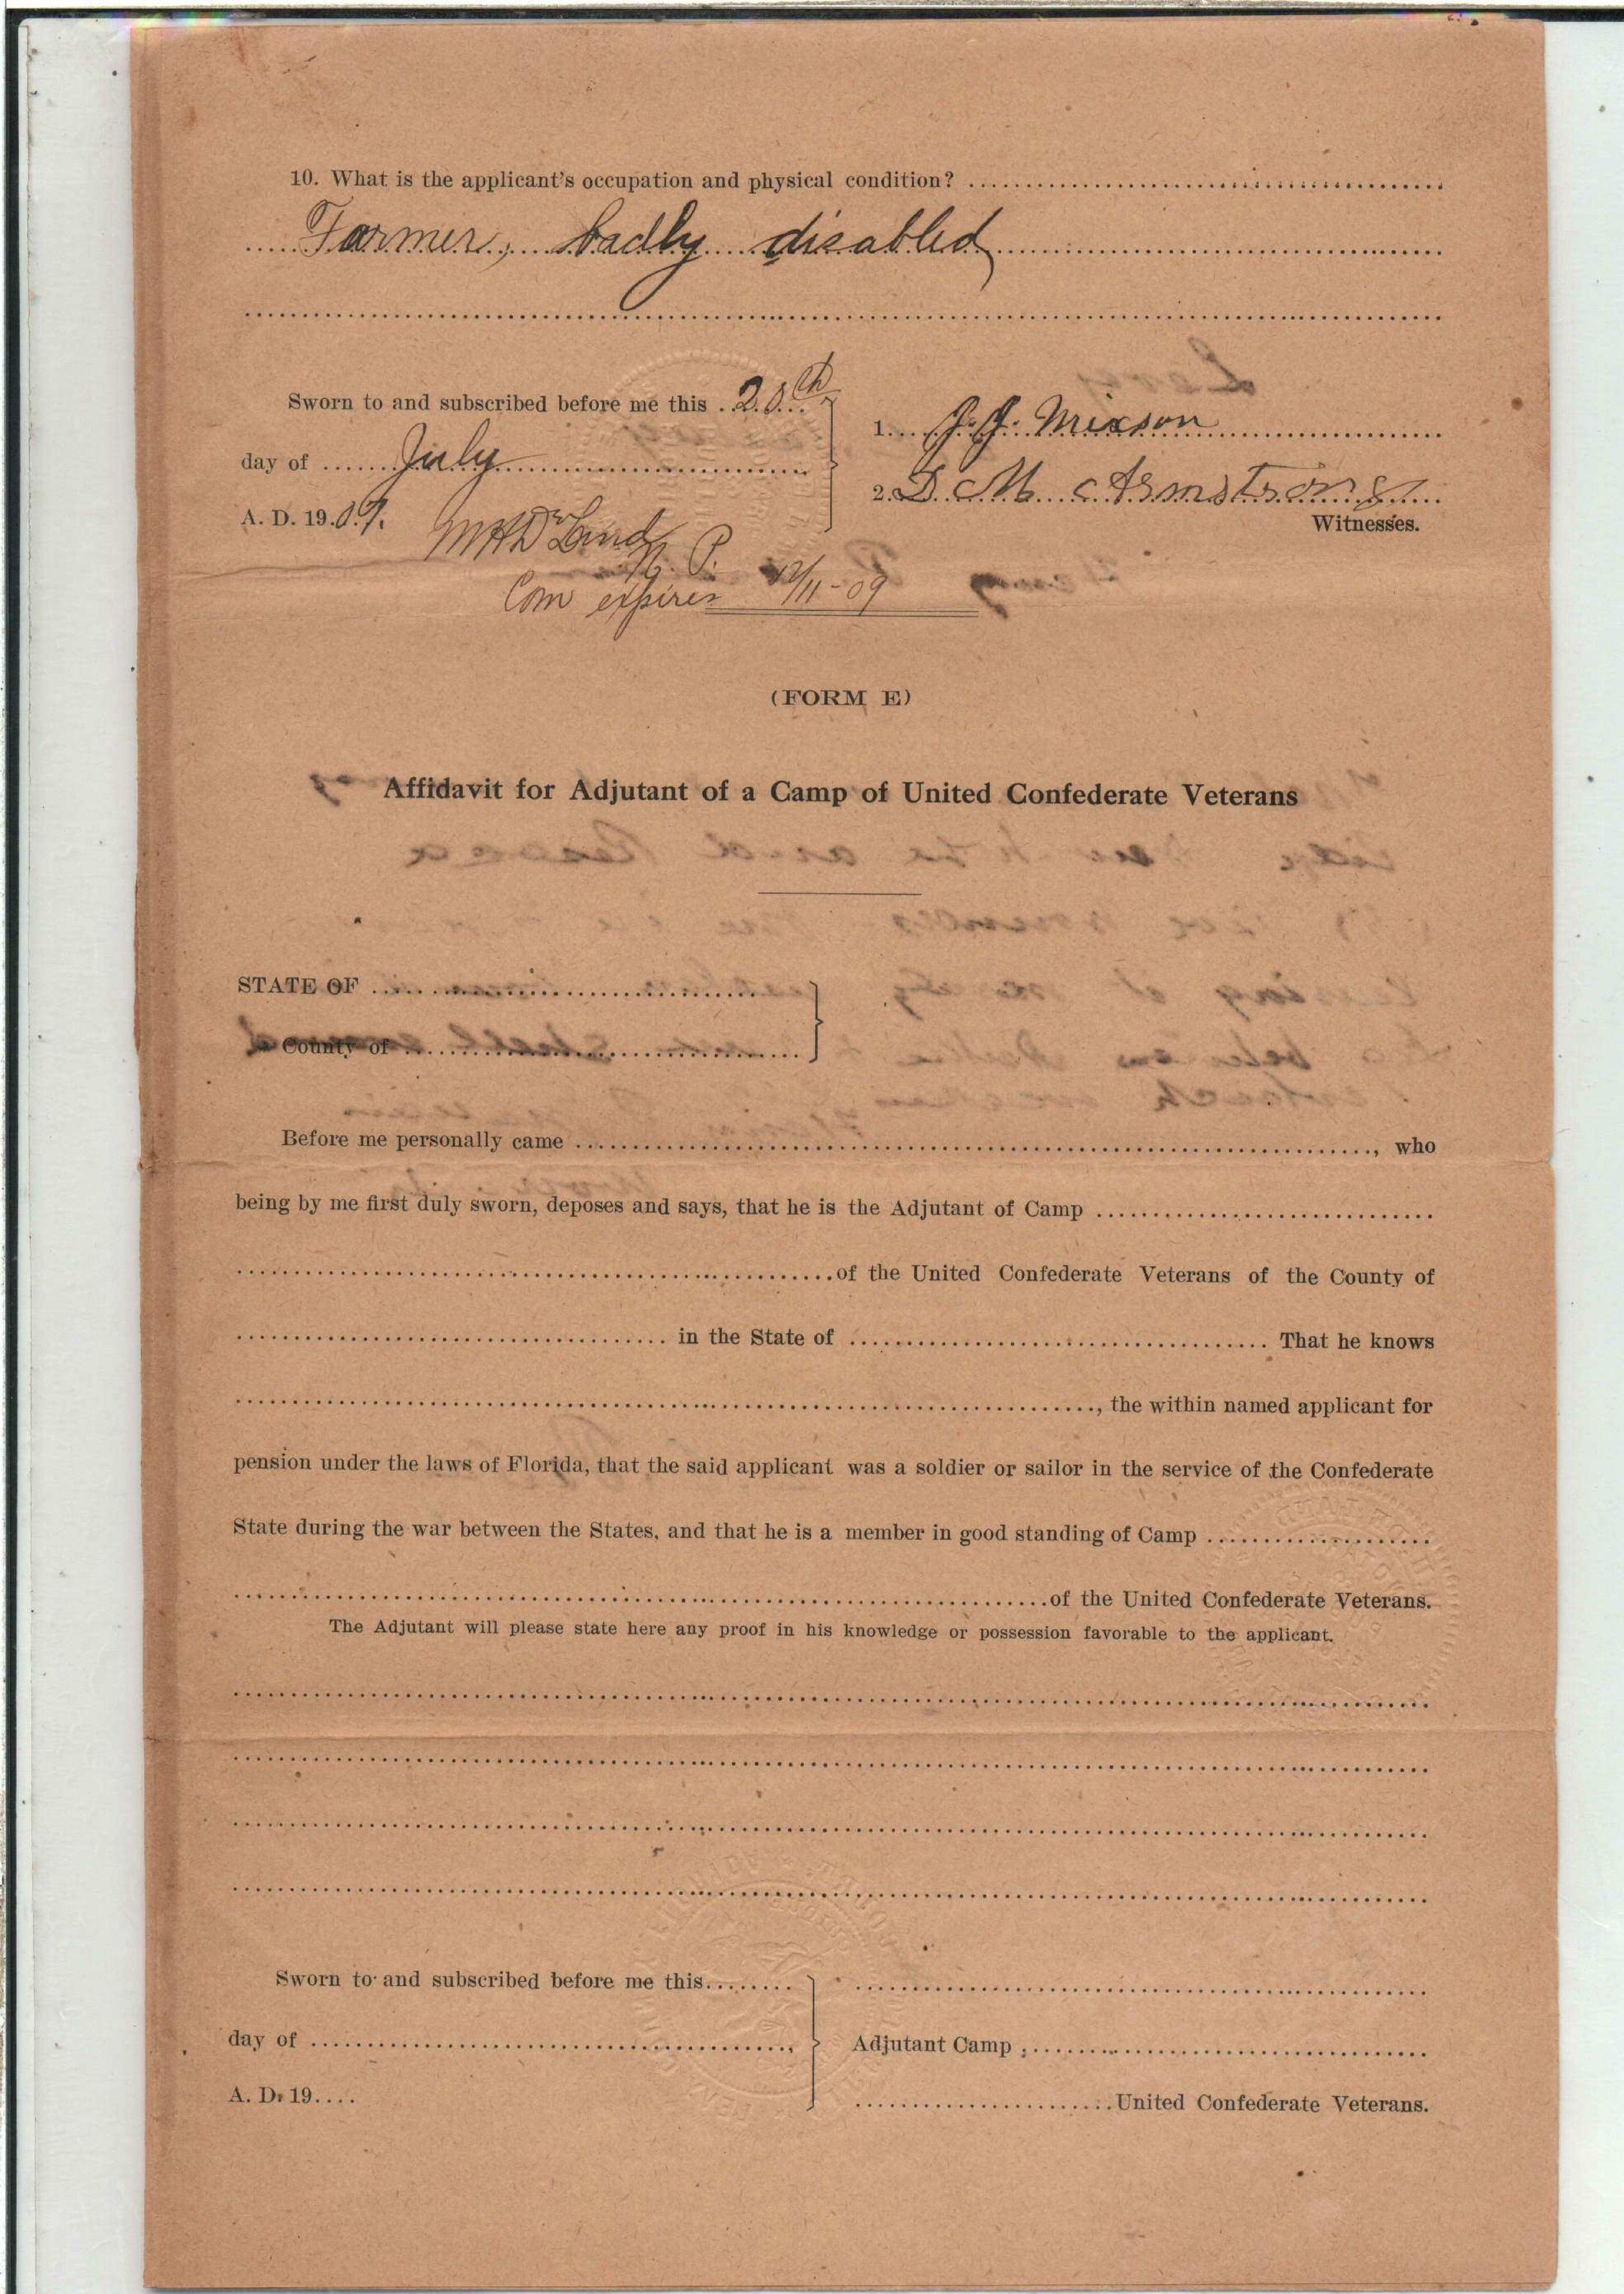 10. What is the applicant's occupation and physical condition?
Farmer, badly disabled
Sworn to and subscribed before me this 20th
day of July
A. D. 1909.
1. J. J. Mixson
2. D. M. Armstrong
Witnesses.
N. P.
Com expires 12/11-09
(FORM E)
Affidavit for Adjutant of a Camp of United Confederate Veterans
STATE OF
County of
Before me personally came , who
being by me first duly sworn, deposes and says, that he is the Adjutant of Camp
of the United Confederate Veterans of the County of
in the State of That he knows
, the within named applicant for
pension under the laws of Florida, that the said applicant was a soldier or sailor in the service of the Confederate
State during the war between the States, and that he is a member in good standing of Camp
of the United Confederate Veterans.
The Adjutant will please state here any proof in his knowledge or possession favorable to the applicant.
Sworn to and subscribed before me this
day of
Adjutant Camp
A. D. 19
United Confederate Veterans.